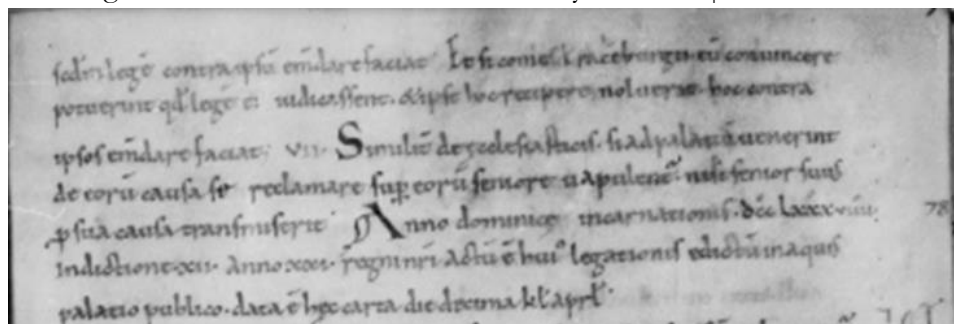 scdm legē contra ipsū emdare faciat. Et si comes l raceburgii eū convincere
potuerint qd legē ei iudicassent. & ipse hoc recipere noluerit. hoc contra
ipsos emdare faciat; VII. Similit̄ de ecclesiasticis. si ad palatiū uenerint
de eorū causa se reclamare sup eorū seniorē uapulent. nisi senior suus
ꝓ sua causa transmiserit. Anno dominicę incarnationis. dcc lxxxviiii. 78
indictione xii. anno xxi. regni nri actū ē hui' legationis edictū in aquis
palatio publico. data ē hęc carta die decima kl aprl.